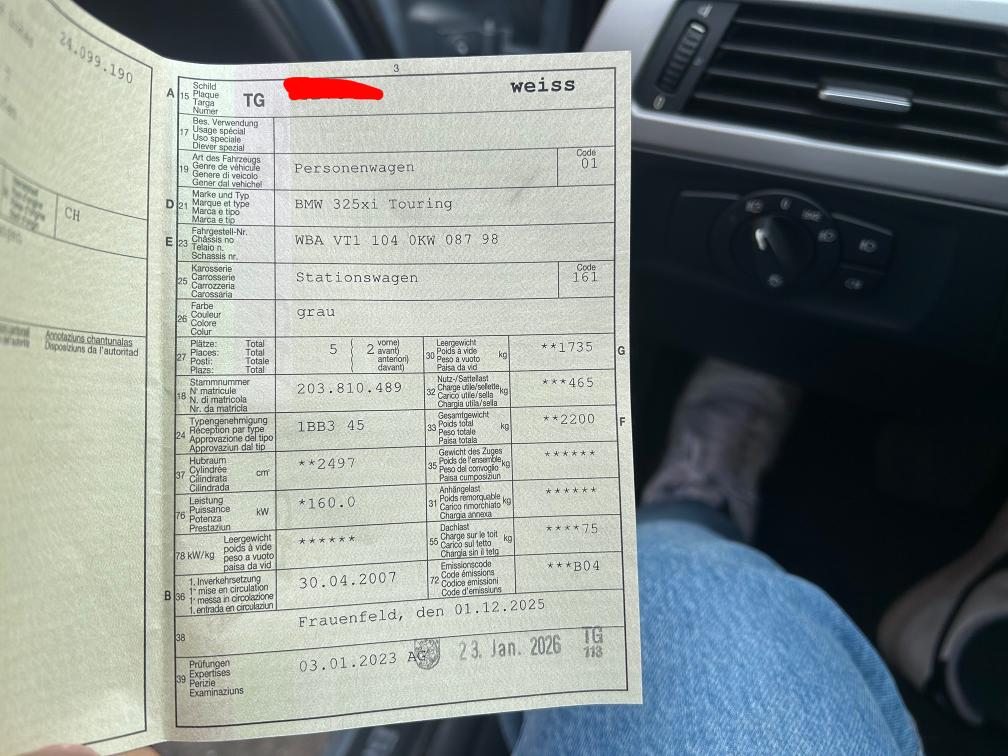 24.099.190
CH
Annotaziuns chantunalas
Disposiziuns da l'autoritad
3
A 15 Schild
Plaque
Targa
Numer
TG weiss
17 Bes. Verwendung
Usage spécial
Uso speciale
Diever spezial
19 Art des Fahrzeugs
Genre de véhicule
Genere di veicolo
Gener dal vehichel
Personenwagen
Code
01
D 21 Marke und Typ
Marque et type
Marca e tipo
Marca e tip
BMW 325xi Touring
E 23 Fahrgestell-Nr.
Châssis no
Telaio n.
Schassis nr.
WBA VT1 104 0KW 087 98
25 Karosserie
Carrosserie
Carrozzeria
Carossaria
Stationswagen
Code
161
26 Farbe
Couleur
Colore
Colur
grau
27 Plätze: Total
Places: Total
Posti: Totale
Plazs: Total
5 ( 2 vorne)
avant)
anteriori)
davant)
30 Leergewicht
Poids à vide
Peso a vuoto
Paisa da vid
kg
**1735 G
18 Stammnummer
N° matricule
N. di matricola
Nr. da matricla
203.810.489
32 Nutz-/Sattellast
Charge utile/sellette
Carico utile/sella
Chargia utila/sella
kg
***465
24 Typengenehmigung
Réception par type
Approvazione del tipo
Approvaziun dal tip
1BB3 45
33 Gesamtgewicht
Poids total
Peso totale
Paisa totala
kg
**2200 F
37 Hubraum
Cylindrée
Cilindrata
Cilindrada
cm³
**2497
35 Gewicht des Zuges
Poids de l'ensemble
Peso del convoglio
Paisa cumposiziun
kg
******
76 Leistung
Puissance
Potenza
Prestaziun
kW
*160.0
31 Anhängelast
Poids remorquable
Carico rimorchiato
Chargia annexa
kg
******
78 kW/kg Leergewicht
poids à vide
peso a vuoto
paisa da vid
******
55 Dachlast
Charge sur le toit
Carico sul tetto
Chargia sin il tetg
kg
****75
B 36 1. Inverkehrsetzung
1re mise en circulation
1a messa in circolazione
1. entrada en circulaziun
30.04.2007
72 Emissionscode
Code émissions
Codice emissioni
Code d'emissiuns
***B04
38 Frauenfeld, den 01.12.2025
39 Prüfungen
Expertises
Perizie
Examinaziuns
03.01.2023 AG 23. Jan. 2026 TG
113